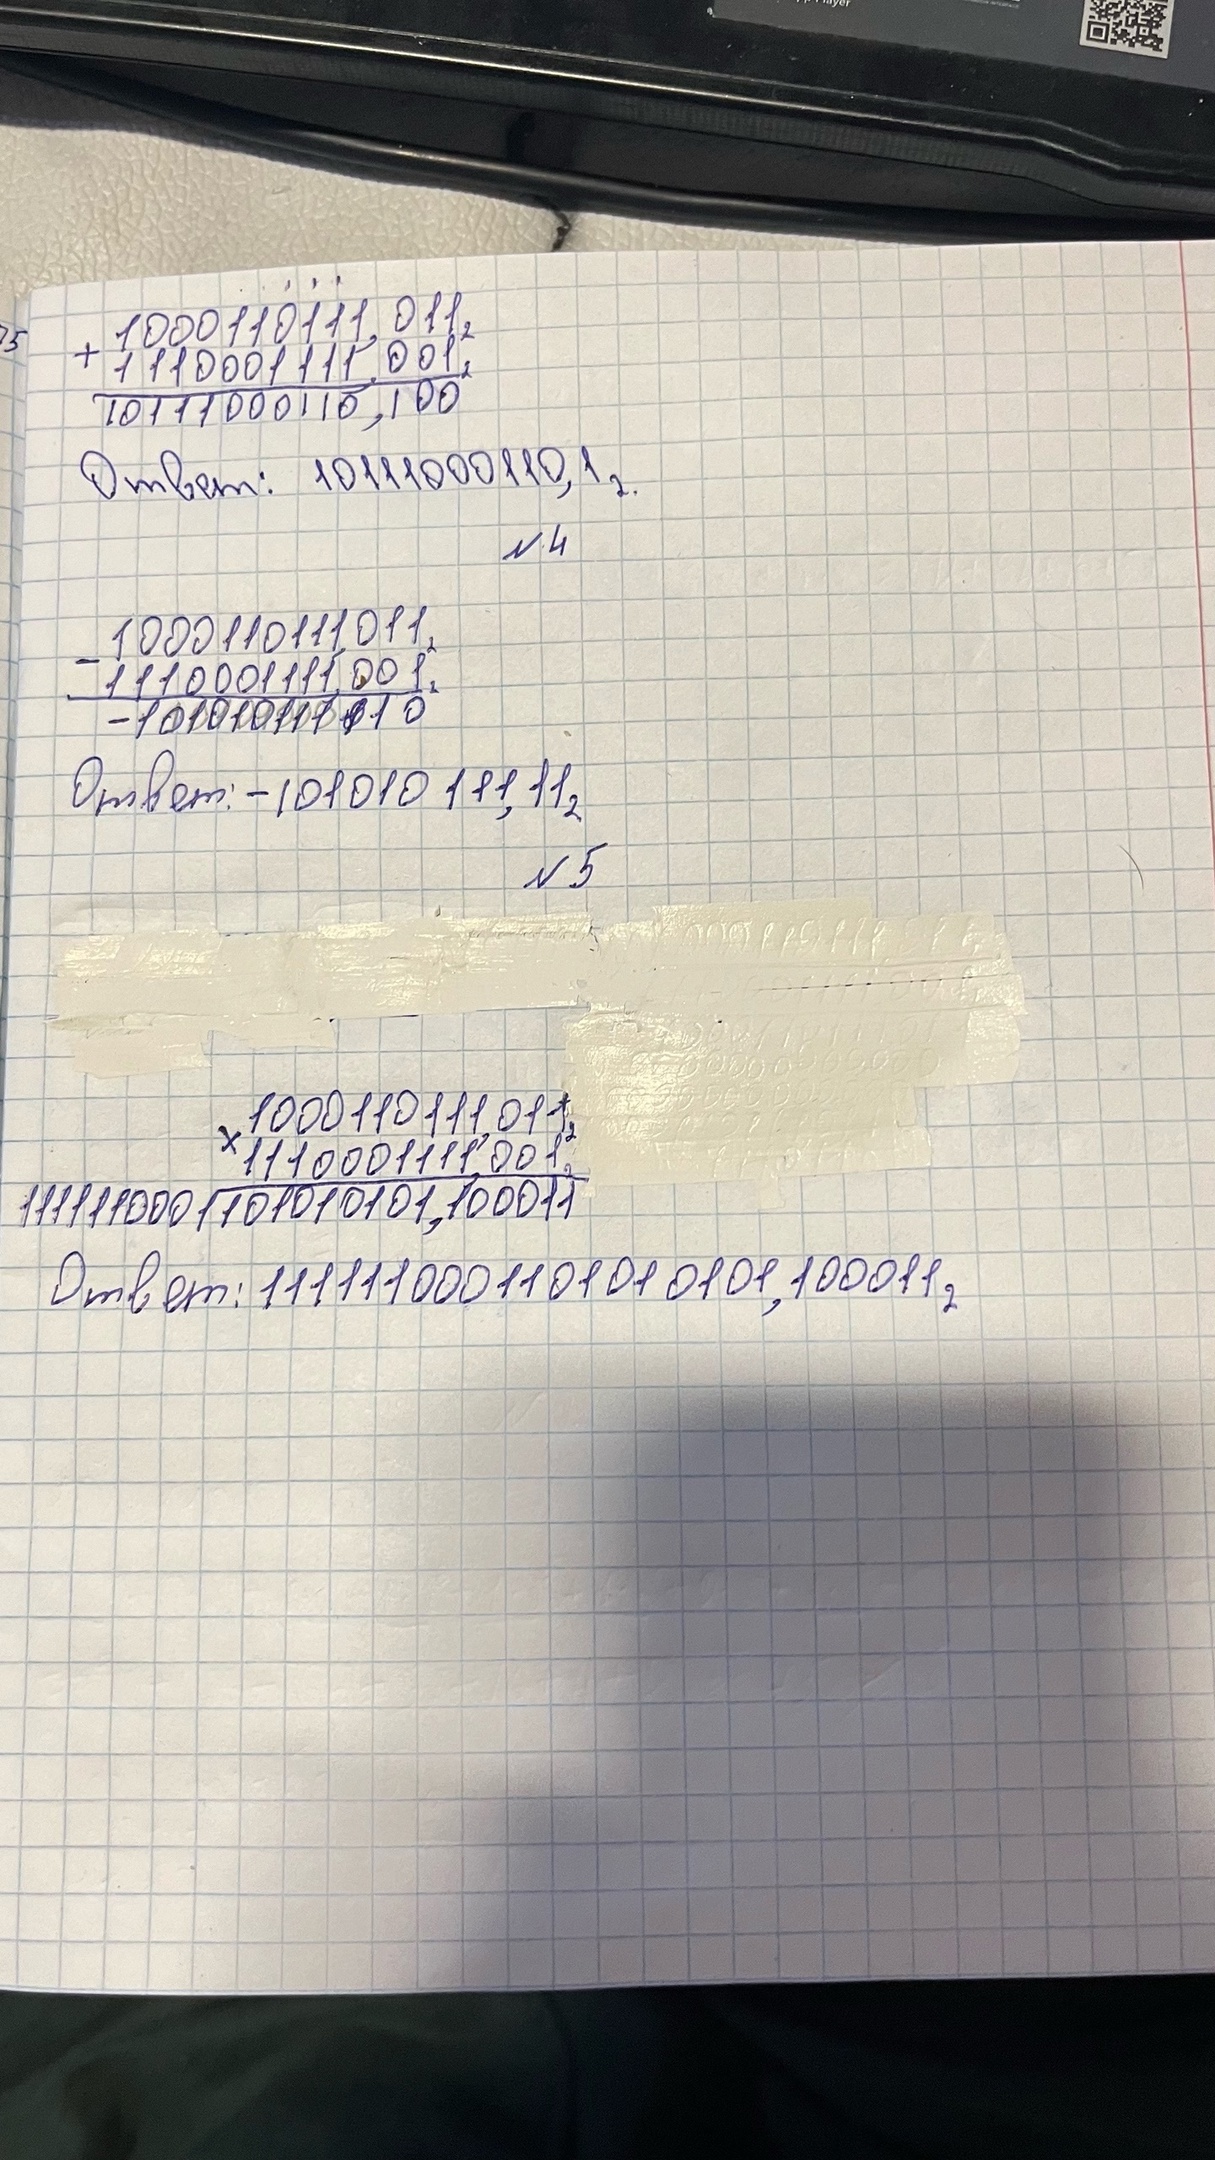 Player
1000110111,011₂
+ 1110001111,001₂
10111000110,100
Ответ: 10111000110,1₂.
№4
1000110111,011₂
- 1110001111,001₂
-101010111 110
Ответ: -101010111,11₂
№5
1000110111,011₂
× 1110001111,001₂
1111110001101010101,100011
Ответ: 1111110001101010101,100011₂